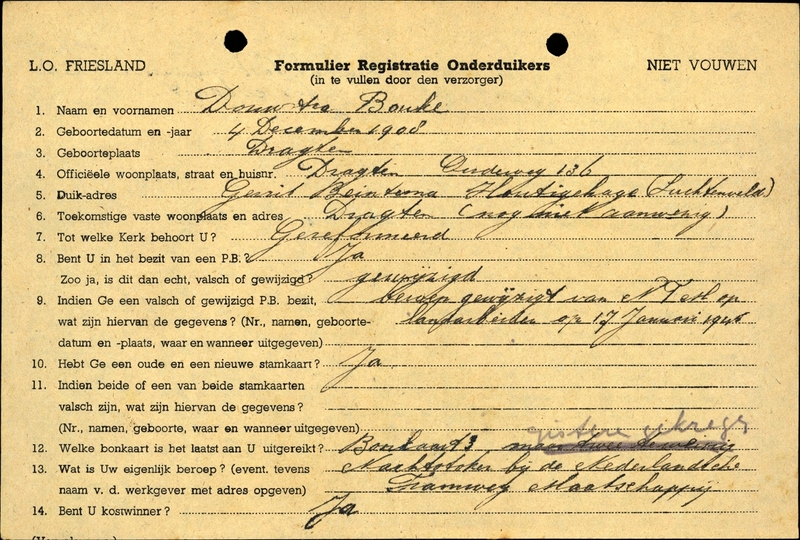 L.O. FRIESLAND Formulier Registratie Onderduikers NIET VOUWEN
(in te vullen door den verzorger)
1. Naam en voornamen Douwstra Bouke
2. Geboortedatum en -jaar 4 December 1908
3. Geboorteplaats Dragten
4. Officiëele woonplaats, straat en huisnr. Dragten Oudeweg 136
5. Duik-adres Gerrit Beintema Houtigehage (Luchtenveld)
6. Toekomstige vaste woonplaats en adres Dragten (nog niet aanwezig)
7. Tot welke Kerk behoort U? Gereformeerd
8. Bent U in het bezit van een P.B.? Ja
Zoo ja, is dit dan echt, valsch of gewijzigd? gewijzigd
9. Indien Ge een valsch of gewijzigd P.B. bezit, beroep gewijzigt van N.T.M. op
wat zijn hiervan de gegevens? (Nr., namen, geboorte- landarbeider op 17 Januari 1945
datum en -plaats, waar en wanneer uitgegeven)
10. Hebt Ge een oude en een nieuwe stamkaart? Ja
11. Indien beide of een van beide stamkaarten
valsch zijn, wat zijn hiervan de gegevens?
(Nr., namen, geboorte, waar en wanneer uitgegeven) gistern gekregen
12. Welke bonkaart is het laatst aan U uitgereikt? Bonkaart 3 maar twee te weinig
13. Wat is Uw eigenlijk beroep? (event. tevens Nachtstoker bij de Nederlandsche
naam v. d. werkgever met adres opgeven) Tramweg Maatschappij
14. Bent U kostwinner? Ja